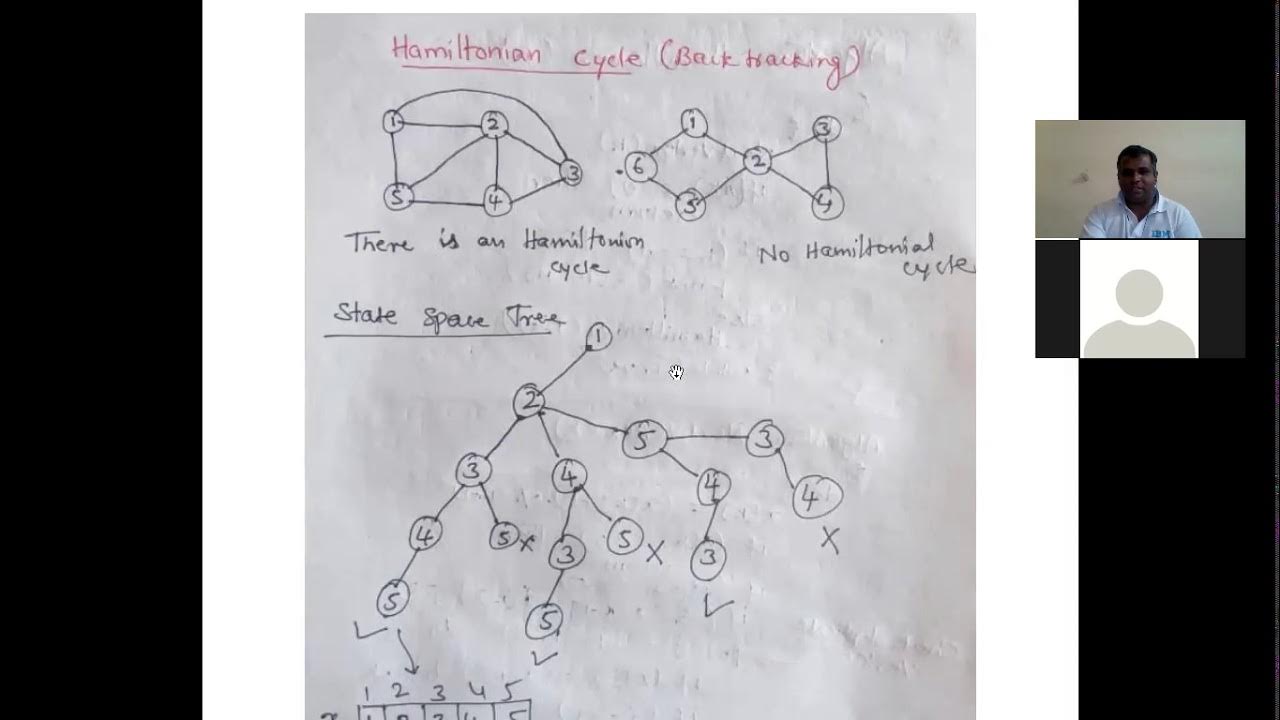 Hamiltonian Cycle (Backtracking)
1 2 3 5 4
1 6 2 3 5 4
There is an Hamiltonion
cycle
No Hamiltonial
cycle
State Space Tree
1
2
5 3
3 4 4 4
X
4 5 X 3 5 X 3
5 5
1 2 3 4 5
IBM